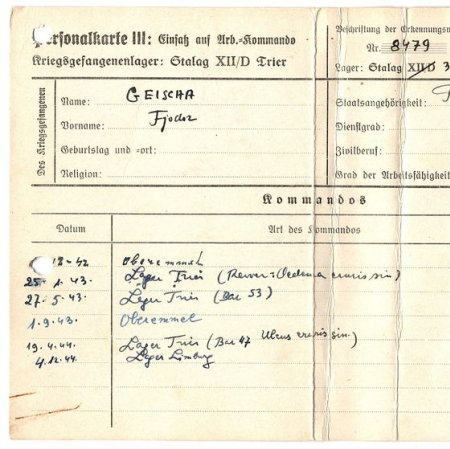 Personalkarte III: Einsatz auf Arb.-Kommando
Kriegsgefangenenlager: Stalag XII/D Trier
Beschriftung der Erkennungsm
Nr. 8479
Lager: Stalag XII/D 3
Des Kriegsgefangenen
Name: GEISCHA
Vorname: Fjodor
Geburtstag und -ort:
Religion:
Staatsangehörigkeit:
Dienstgrad:
Zivilberuf:
Grad der Arbeitsfähigkeit
Kommandos
Datum Art des Kommandos
12-42 Oberemmel
25. 1. 43. Lager Trier (Reserv: Oedema cruris sin)
27. 5. 43. Lager Trier (Bar 53)
1. 9. 43. Oberemmel
19. 4. 44. Lager Trier (Bar 47 Ulcus cruris sin.)
4. 12. 44. Lager Limburg